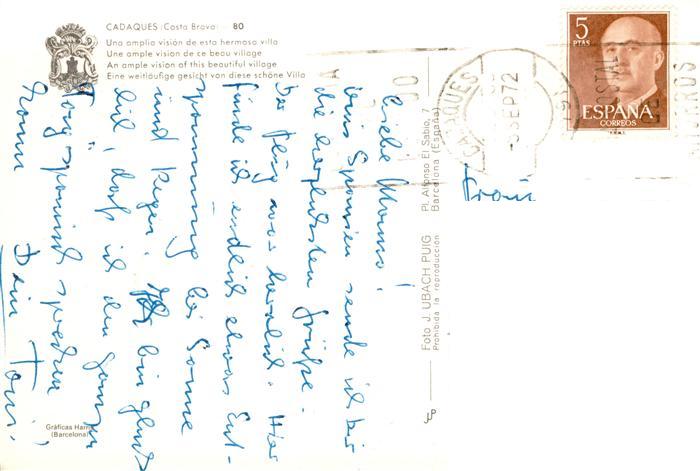 CADAQUES (Costa Brava) 80
Una amplia visión de esta hermosa villa
Une ample vision de ce beau village
An ample vision of this beautiful village
Eine weitläufige gesicht von diese schöne Villa
5
PTAS
ESPAÑA
CORREOS
CADAQUES
SEP 72
Liebe Mama!
Aus Spanien sende ich dir
die herzlichsten Grüße.
Der Flug war herrlich. Hier
finde ich endlich etwas Ent-
spannung bei Sonne
und Regen. Ich bin glück-
lich, daß ich den ganzen
Tag spanisch sprechen
kann
Dein Toni
Frau
Pl. Alfonso El Sabio, 7
Barcelona (España)
Foto J. UBACH PUIG
Prohibida la reproducción
Gráficas
(Barcelona)